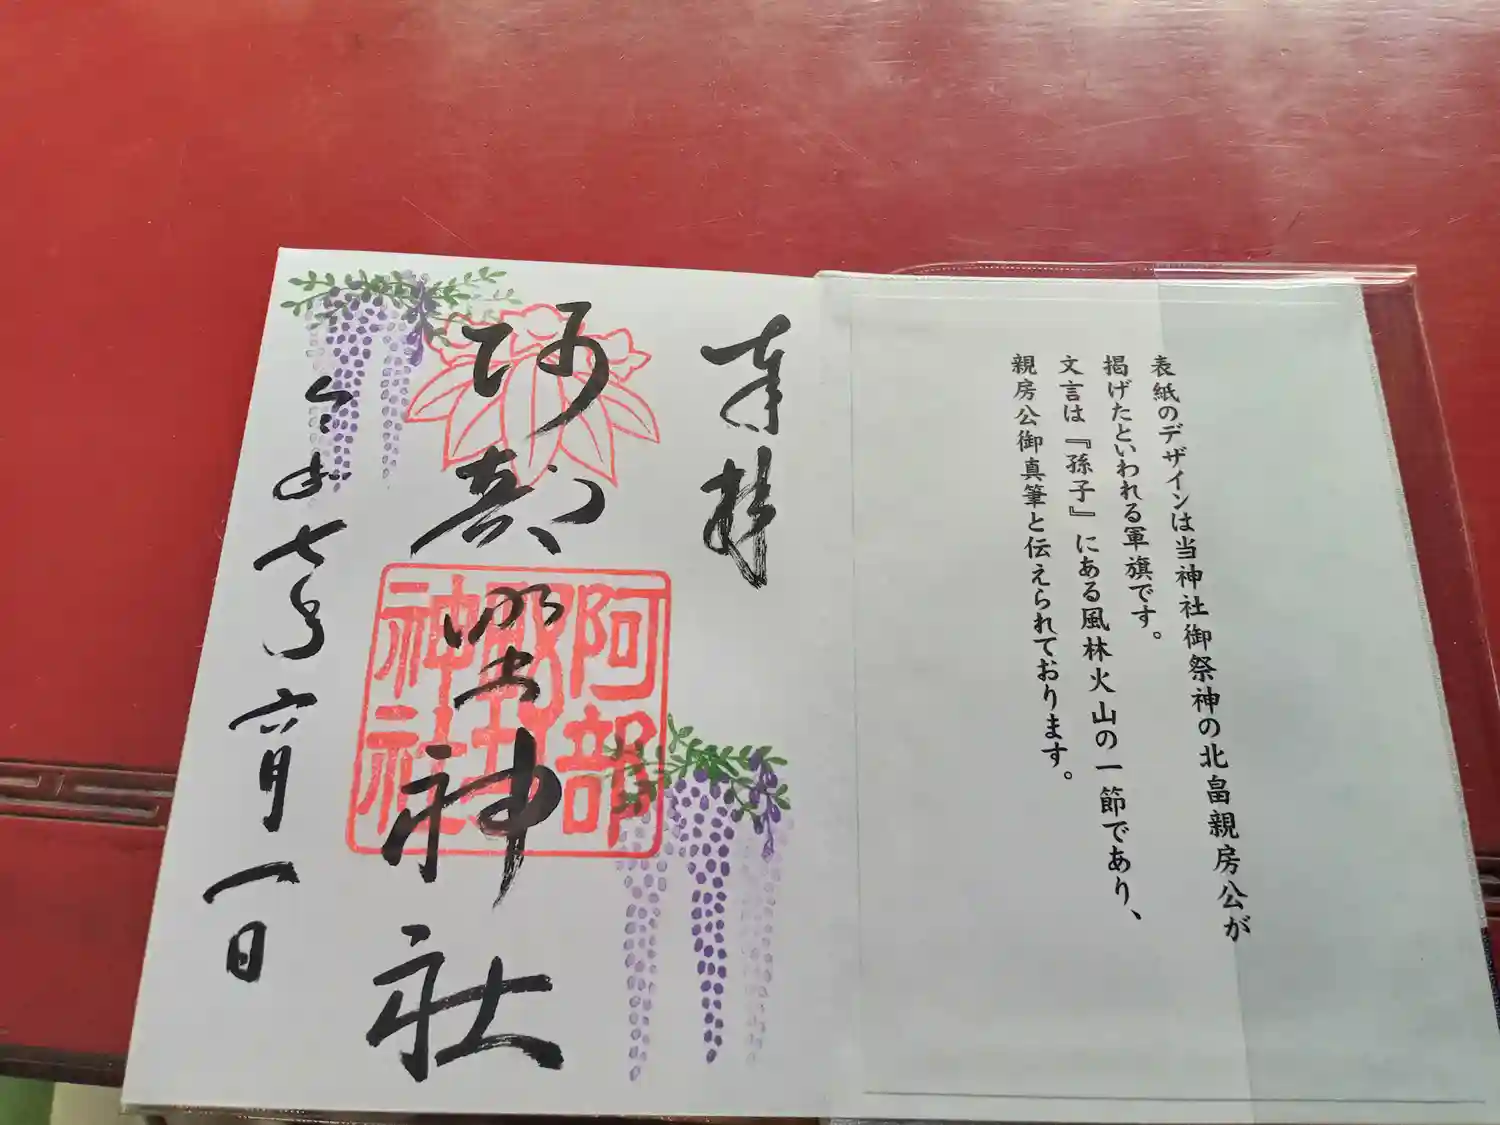 表紙のデザインは当神社御祭神の北畠親房公が
掲げたといわれる軍旗です。
文言は『孫子』にある風林火山の一節であり、
親房公御真筆と伝えられております。
奉拝
阿部野神社
阿部野神社
令和七年六月一日